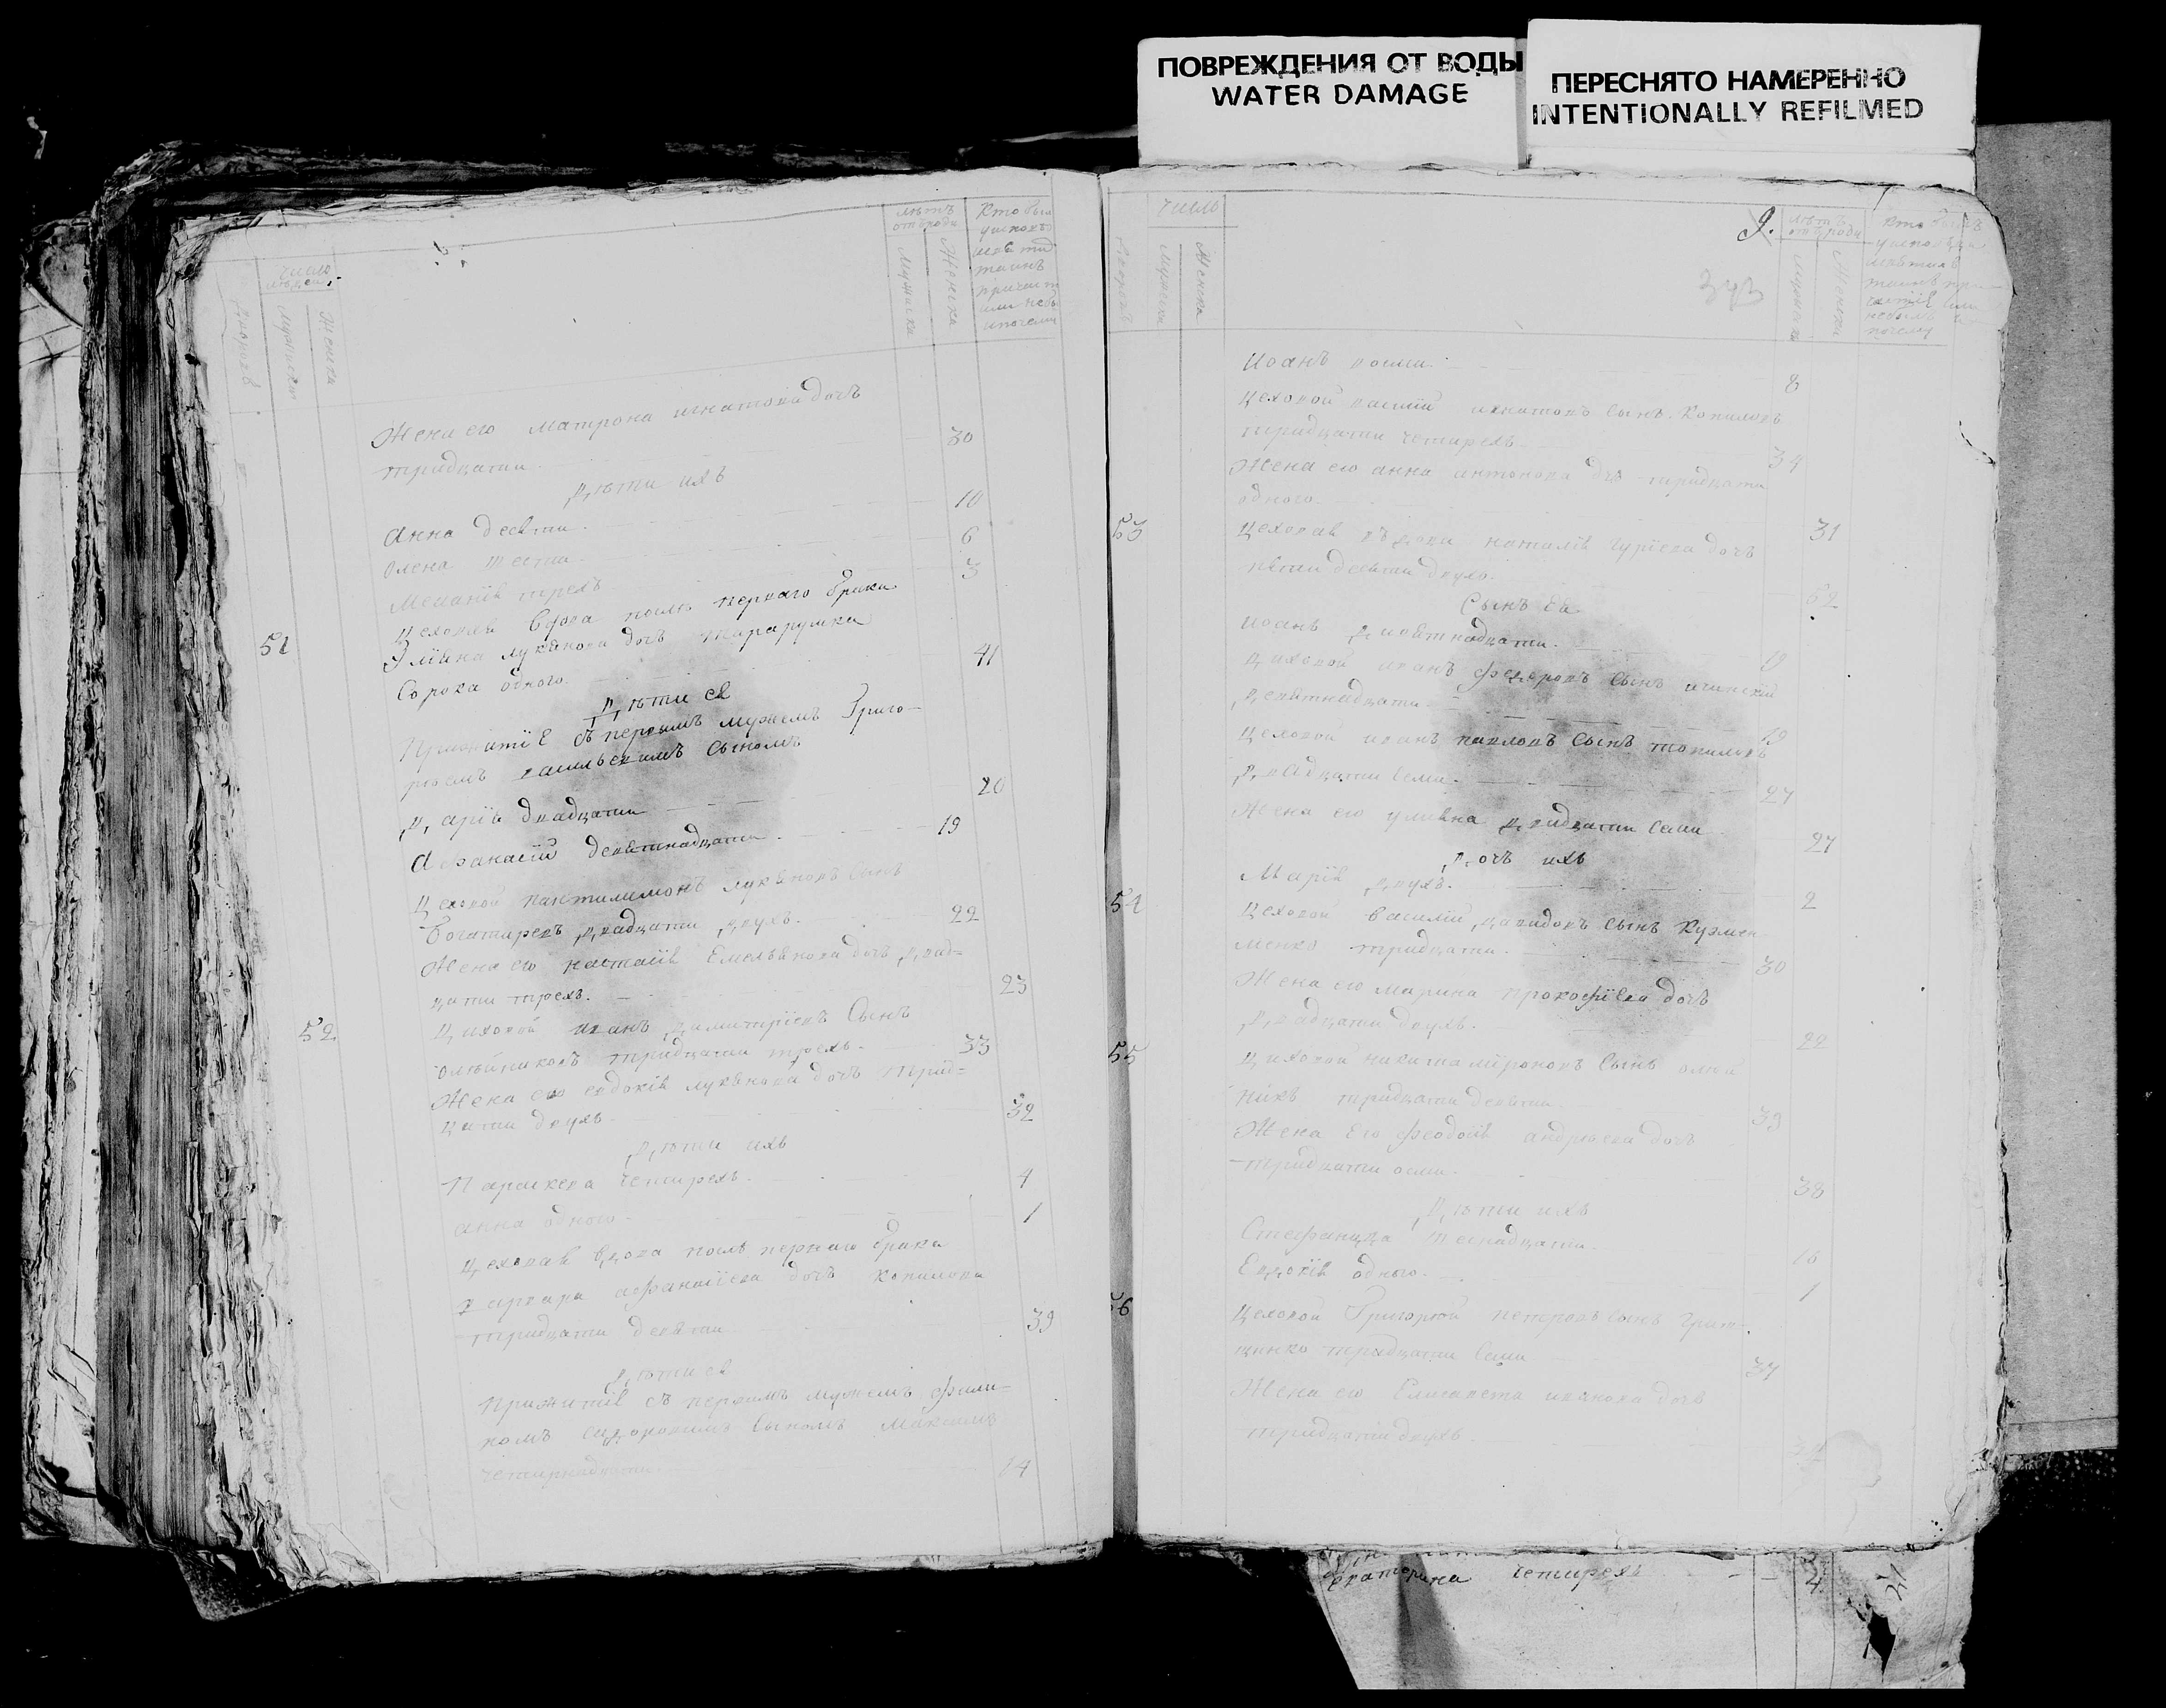 ПОВРЕЖДЕНИЯ ОТ ВОДЫ
WATER DAMAGE
ПЕРЕСНЯТО НАМЕРЕННО
INTENTIONALLY REFILMED
число
людей
Мужска
Женска
лѣтъ
отъ роди
Мужиска
Женска
Жена его Матрона игнатова дочь
тридцати 30
Дѣти ихъ
Анна десяти 10
Олена шести 6
Меланія трехъ 3
51 Цеховая вдова послѣ перваго брака
лукянова дочь
Сорока одного 41
Дѣти ея
съ первымъ мужемъ Григо-
рiемъ васильевимъ Сыномъ
Дарія двадцати 20
Афанасій девятнадцати 19
Цеховой пантилимонъ лукяновъ Сынъ
Богатиревъ двадцати двухъ 22
Жена его настасія Емельянова дочь двад=
цати трехъ 23
52 Циховой иванъ димитріевъ Сынъ
олейниковъ тридцати трехъ 33
Жена его евдокія лукянова дочь трид=
цати двухъ 32
Дѣти ихъ
Параскева четирехъ 4
анна одного 1
Цеховая вдова послѣ перваго брака
варвара афанасіева дочь копилова
тридцати девяти 39
Дѣти ея
съ первимъ мужемъ фили=
помъ сидоровимъ Сыномъ Максимъ
четирнадцати 14
9.
343
число
Мужеска
Женска
Иоанъ восми 8
Цеховой василій игнатовъ Сынъ Копиловъ
тридцати четирехъ 34
Жена его анна антонова дочь тридцати
одного 31
53 Цеховая вдова наталія гуріева дочь
пятидесяти двухъ 52
Сынъ Ея
Иоанъ девятнадцати 19
Циховой иванъ Федоровъ Сынъ
девятнадцати 19
Цеховой иванъ павловъ Сынъ топиловъ
двадцати семи 27
Жена его улияна двадцати семи 27
Дочь ихъ
Марія двухъ 2
54 Цеховой Василій давидовъ Сынъ Кузмен
менко тридцати 30
Жена его марина прокофіева дочь
двадцати двухъ 22
55 Циховой никита міроновъ Сынъ олей
никъ тридцати девяти 39
Жена Его Феодосія андреева дочь
тридцати осми 38
Дѣти ихъ
Стефанида шеснадцати 16
Евдокія одного 1
56 Цеховой Григорій петровъ сынъ Гри-
щенко тридцати семи 37
Жена его Елисавета иванова дочь
тридцати двухъ
Екатерина четирехъ 4